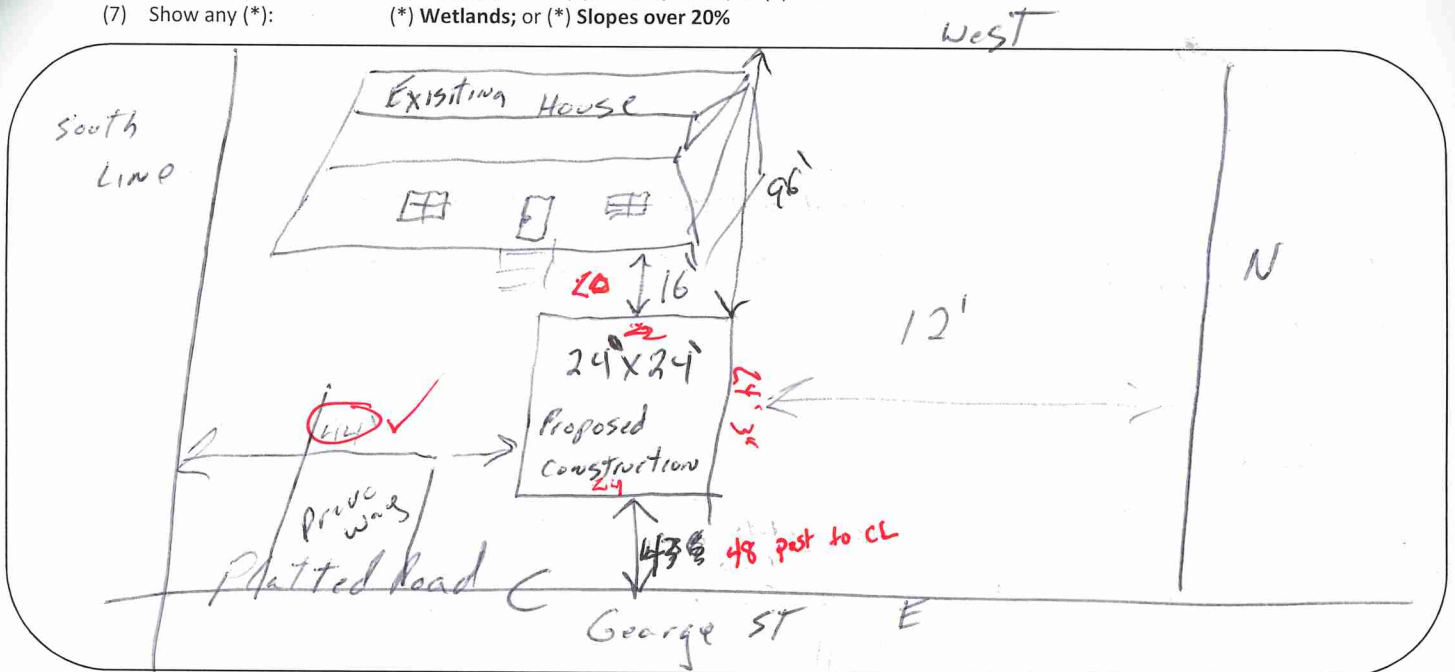 (7) Show any (*): (*) Wetlands; or (*) Slopes over 20%
West
South
Line
Exisiting House
96'
N
20 16'
12'
24' x 24'
24' 3"
44'
Proposed
Construction
24
48 post to CL
Platted Road
George ST E